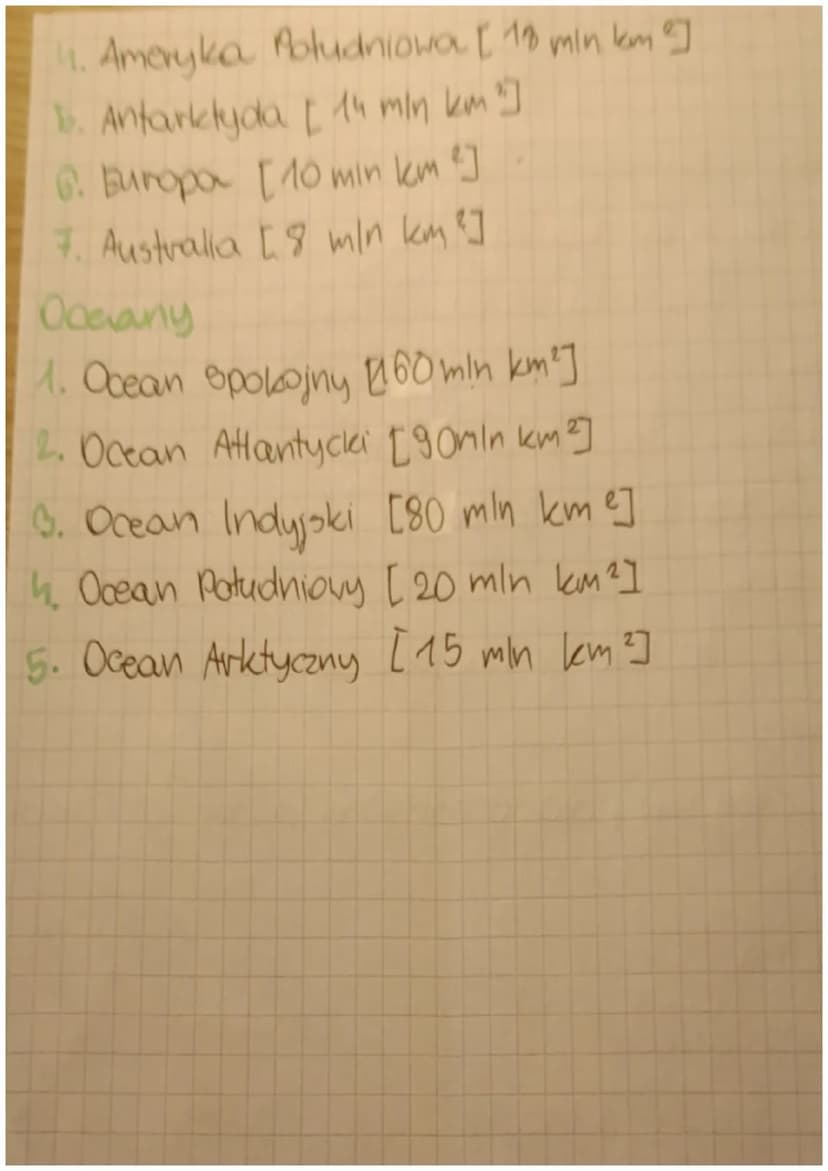 4. Ameryka Południowa [18 mln km²]
5. Antarktyda [14 mln km²]
6. Europa [10 mln km²]
7. Australia [8 mln km²]
Oceany
1. Ocean Spokojny [160 mln km²]
2. Ocean Atlantycki [90 mln km²]
3. Ocean Indyjski [80 mln km²]
4. Ocean Południowy [20 mln km²]
5. Ocean Arktyczny [15 mln km²]